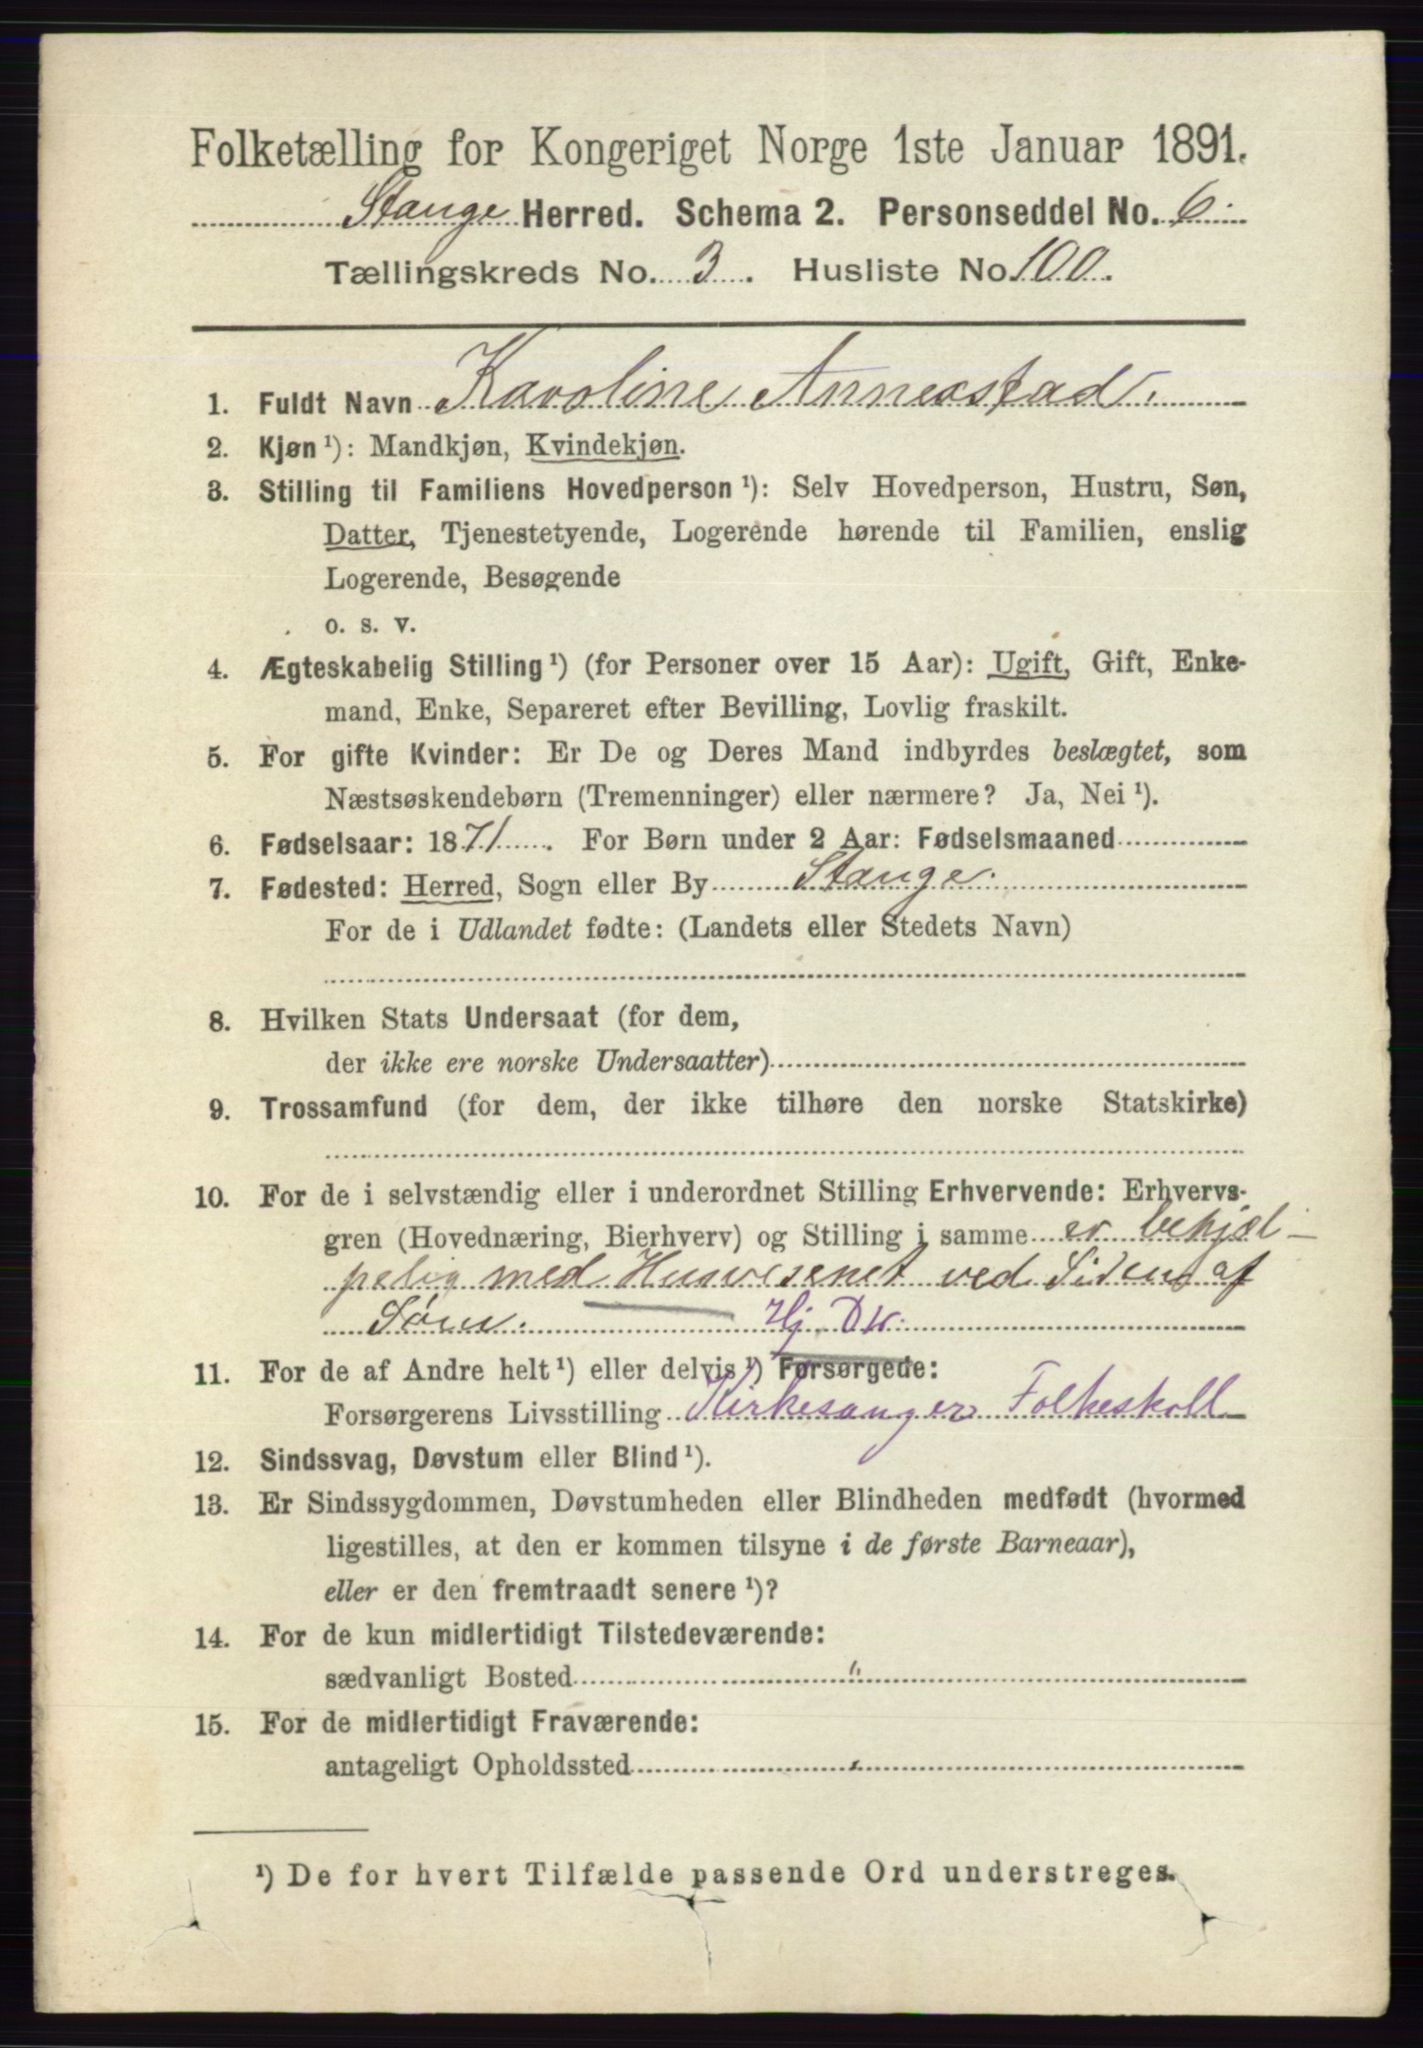 Folketælling for Kongeriget Norge 1ste Januar 1891.
Stange Herred. Schema 2. Personseddel No. 6.
Tællingskreds No. 3. Husliste No 100.
1. Fuldt Navn Karoline Annexstad.
2. Kjøn ¹): Mandkjøn, Kvindekjøn.
3. Stilling til Familiens Hovedperson ¹): Selv Hovedperson, Hustru, Søn,
Datter, Tjenestetyende, Logerende hørende til Familien, enslig
Logerende, Besøgende
o. s. v.
4. Ægteskabelig Stilling ¹) (for Personer over 15 Aar): Ugift, Gift, Enke-
mand, Enke, Separeret efter Bevilling, Lovlig fraskilt.
5. For gifte Kvinder: Er De og Deres Mand indbyrdes beslægtet, som
Næstsøskendebørn (Tremenninger) eller nærmere? Ja, Nei ¹).
6. Fødselsaar: 1871. For Børn under 2 Aar: Fødselsmaaned
7. Fødested: Herred, Sogn eller By Stange.
For de i Udlandet fødte: (Landets eller Stedets Navn)
8. Hvilken Stats Undersaat (for dem,
der ikke ere norske Undersaatter)
9. Trossamfund (for dem, der ikke tilhøre den norske Statskirke)
10. For de i selvstændig eller i underordnet Stilling Erhvervende: Erhvervs-
gren (Hovednæring, Bierhverv) og Stilling i samme er behjæl-
pelig med Husvesenet ved Siden af
Søm. Hj. Dtr.
11. For de af Andre helt ¹) eller delvis ¹) Forsørgede:
Forsørgerens Livsstilling Kirkesanger Folkeskoll
12. Sindssvag, Døvstum eller Blind ¹).
13. Er Sindssygdommen, Døvstumheden eller Blindheden medfødt (hvormed
ligestilles, at den er kommen tilsyne i de første Barneaar),
eller er den fremtraadt senere ¹)?
14. For de kun midlertidigt Tilstedeværende:
sædvanligt Bosted "
15. For de midlertidigt Fraværende:
antageligt Opholdssted
¹) De for hvert Tilfælde passende Ord understreges.